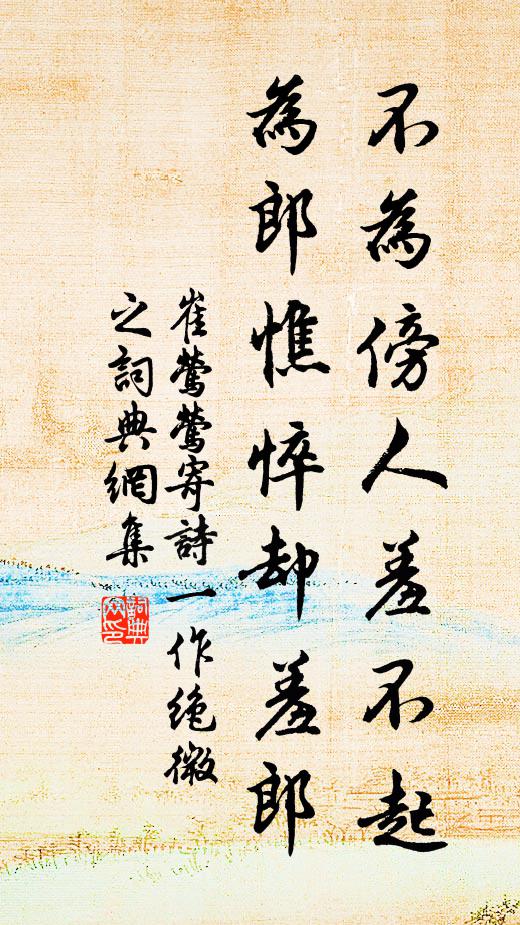 不為傍人羞不起
為郎憔悴却羞郎
崔鶯鶯寄詩一作絶微
之詞典網集
詞典
网印